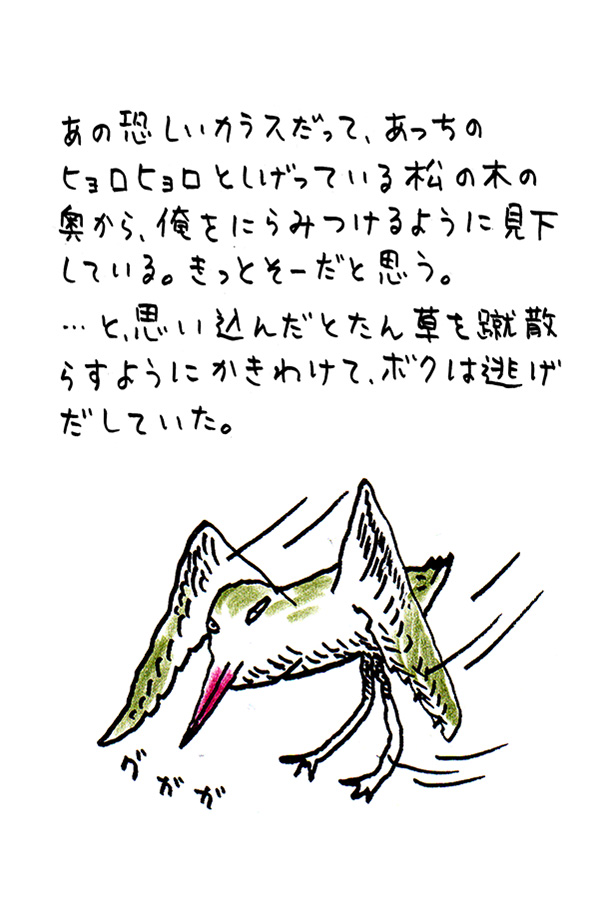 あの恐しいカラスだって、あっちの
ヒョロヒョロとしげっている松の木の
奥から、俺をにらみつけるように見下
している。きっとそーだと思う。
…と、思い込んだとたん草を蹴散
らすようにかきわけて、ボクは逃げ
だしていた。
グガガ